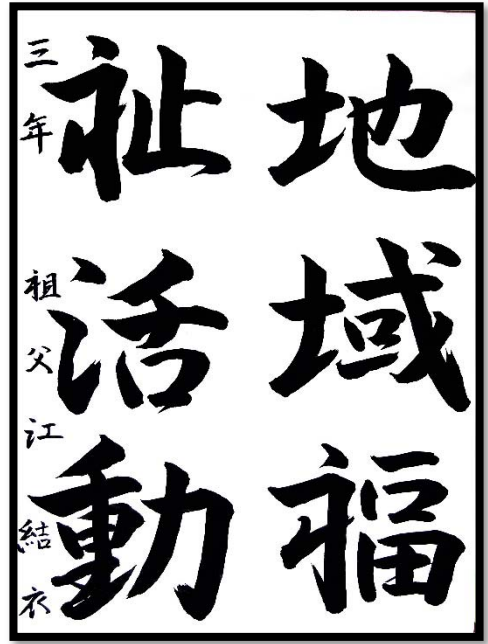 地域福
祉活動
三年 祖父江結衣